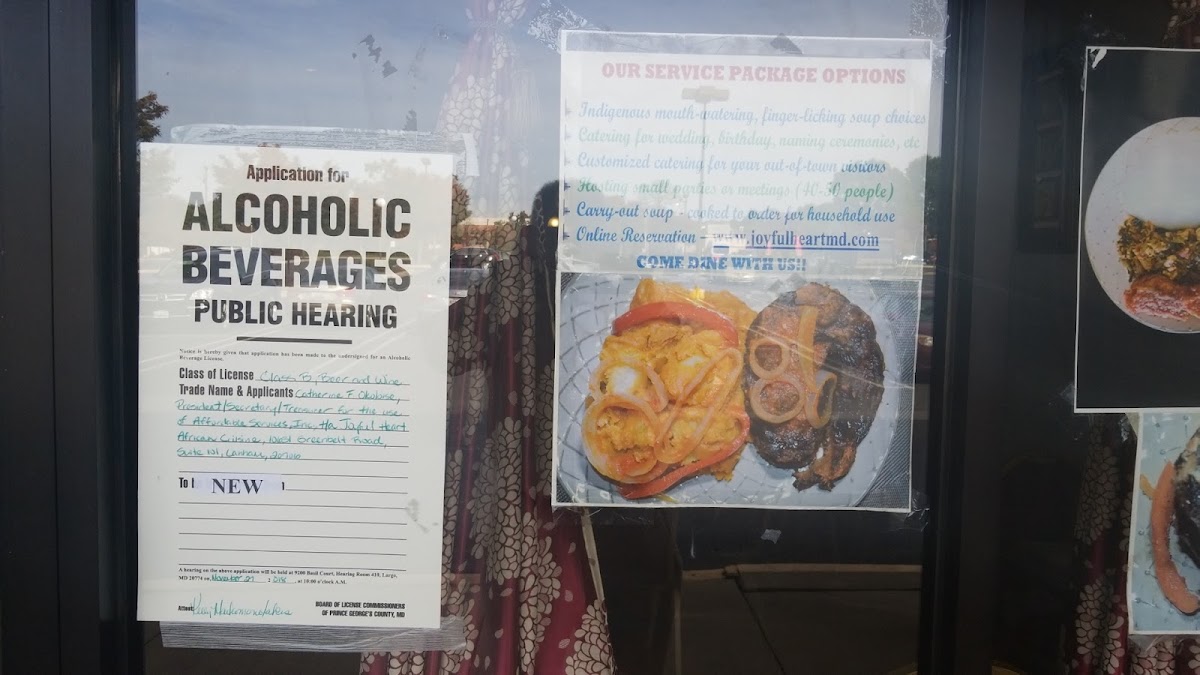 Application for
ALCOHOLIC
BEVERAGES
PUBLIC HEARING
Notice is hereby given that application has been made to the undersigned for an Alcoholic
Beverage License.
Class of License Class B, Beer and Wine
Trade Name & Applicants Catherine F.
President/Secretary/Treasurer for the use
of Affordable Services, Inc, t/a Joyful Heart
African Cuisine, Greenbelt Road,
Suite Lanham, 20706
NEW
A hearing on the above application will be held at 9200 Basil Court, Hearing Room 410, Largo,
MD 20774 on, November at 10:00 o'clock A.M.
Attest:
BOARD OF LICENSE COMMISSIONERS
OF PRINCE GEORGE'S COUNTY, MD
OUR SERVICE PACKAGE OPTIONS
Indigenous mouth-watering, finger-licking soup choices
Catering for wedding, birthday, naming ceremonies, etc
Customized catering for your out-of-town visitors
Hosting small parties or meetings (40-50 people)
Carry-out soup - cooked to order for household use
Online Reservation - www.joyfulheartmd.com
COME DINE WITH US!!